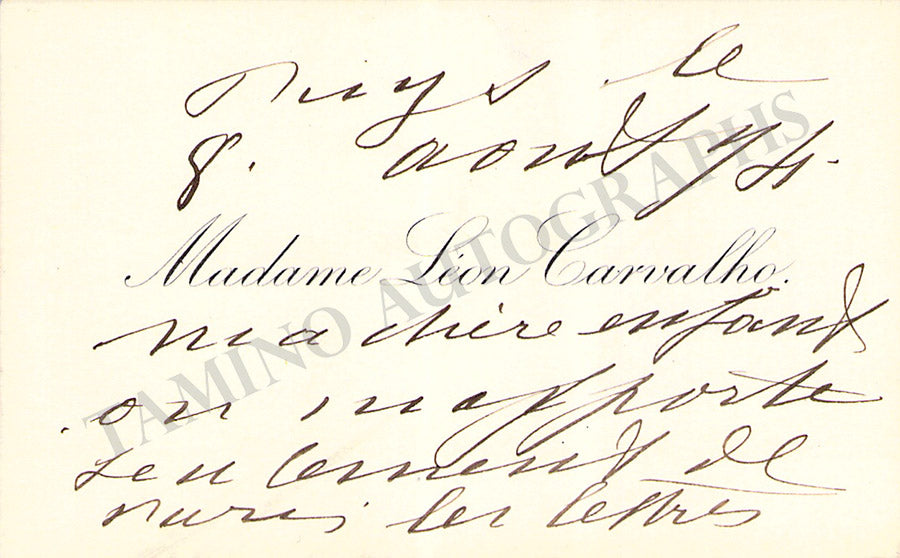 Puys le
8. aout 94.
Madame Léon Carvalho.
ma chère enfant
on m'apporte
seulement de
Paris les lettres
TAMINO AUTOGRAPHS